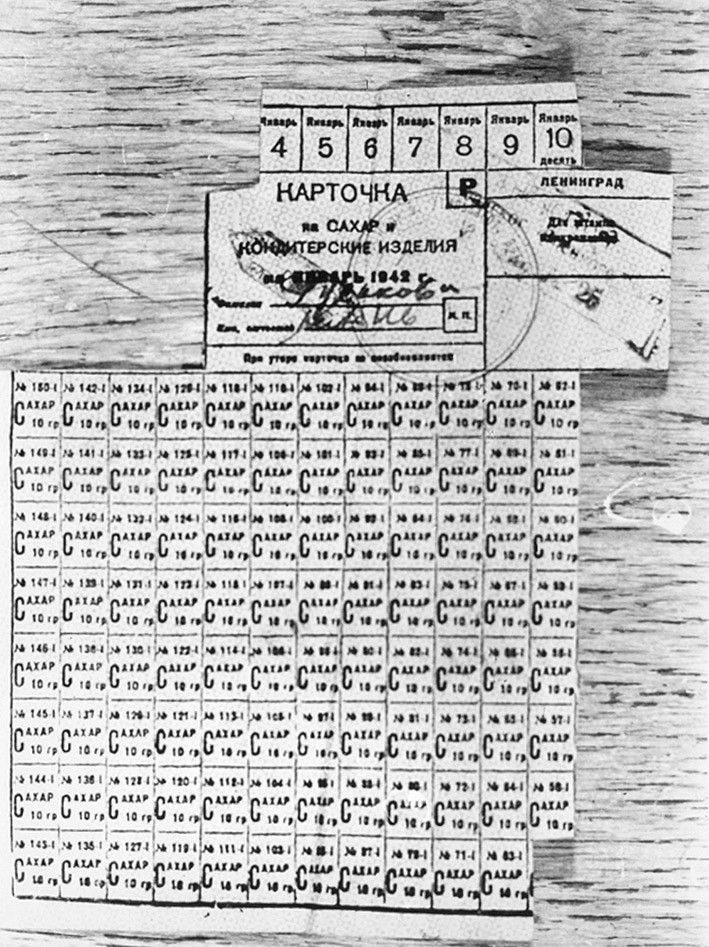 Январь Январь Январь Январь Январь Январь Январь
4 5 6 7 8 9 10
десять
КАРТОЧКА Р
на САХАР и
КОНДИТЕРСКИЕ ИЗДЕЛИЯ
на ЯНВАРЬ 1942 г.
Фамилия
Имя, отчество
М. П.
При утере карточка не возобновляется
ЛЕНИНГРАД
Для штампа
25
№ 150-I № 142-I № 134-I № 126-I № 118-I № 110-I № 102-I № 94-I № 86-I № 78-I № 70-I № 62-I
САХАР САХАР САХАР САХАР САХАР САХАР САХАР САХАР САХАР САХАР САХАР САХАР
10 гр 10 гр 10 гр 10 гр 10 гр 10 гр 10 гр 10 гр 10 гр 10 гр 10 гр 10 гр
№ 149-I № 141-I № 133-I № 125-I № 117-I № 109-I № 101-I № 93-I № 85-I № 77-I № 69-I № 61-I
САХАР САХАР САХАР САХАР САХАР САХАР САХАР САХАР САХАР САХАР САХАР САХАР
10 гр 10 гр 10 гр 10 гр 10 гр 10 гр 10 гр 10 гр 10 гр 10 гр 10 гр 10 гр
№ 148-I № 140-I № 132-I № 124-I № 116-I № 108-I № 100-I № 92-I № 84-I № 76-I № 68-I № 60-I
САХАР САХАР САХАР САХАР САХАР САХАР САХАР САХАР САХАР САХАР САХАР САХАР
10 гр 10 гр 10 гр 10 гр 10 гр 10 гр 10 гр 10 гр 10 гр 10 гр 10 гр 10 гр
№ 147-I № 139-I № 131-I № 123-I № 115-I № 107-I № 99-I № 91-I № 83-I № 75-I № 67-I № 59-I
САХАР САХАР САХАР САХАР САХАР САХАР САХАР САХАР САХАР САХАР САХАР САХАР
10 гр 10 гр 10 гр 10 гр 10 гр 10 гр 10 гр 10 гр 10 гр 10 гр 10 гр 10 гр
№ 146-I № 138-I № 130-I № 122-I № 114-I № 106-I № 98-I № 90-I № 82-I № 74-I № 66-I № 58-I
САХАР САХАР САХАР САХАР САХАР САХАР САХАР САХАР САХАР САХАР САХАР САХАР
10 гр 10 гр 10 гр 10 гр 10 гр 10 гр 10 гр 10 гр 10 гр 10 гр 10 гр 10 гр
№ 145-I № 137-I № 129-I № 121-I № 113-I № 105-I № 97-I № 89-I № 81-I № 73-I № 65-I № 57-I
САХАР САХАР САХАР САХАР САХАР САХАР САХАР САХАР САХАР САХАР САХАР САХАР
10 гр 10 гр 10 гр 10 гр 10 гр 10 гр 10 гр 10 гр 10 гр 10 гр 10 гр 10 гр
№ 144-I № 136-I № 128-I № 120-I № 112-I № 104-I № 96-I № 88-I № 80-I № 72-I № 64-I № 56-I
САХАР САХАР САХАР САХАР САХАР САХАР САХАР САХАР САХАР САХАР САХАР САХАР
10 гр 10 гр 10 гр 10 гр 10 гр 10 гр 10 гр 10 гр 10 гр 10 гр 10 гр 10 гр
№ 143-I № 135-I № 127-I № 119-I № 111-I № 103-I № 95-I № 87-I № 79-I № 71-I № 63-I
САХАР САХАР САХАР САХАР САХАР САХАР САХАР САХАР САХАР САХАР САХАР
10 гр 10 гр 10 гр 10 гр 10 гр 10 гр 10 гр 10 гр 10 гр 10 гр 10 гр